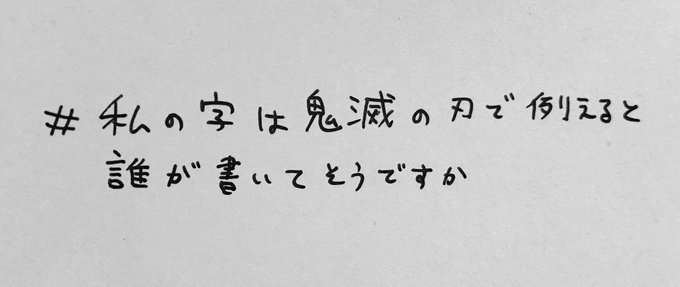 #私の字は鬼滅の刃で例えると
誰が書いてそうですか